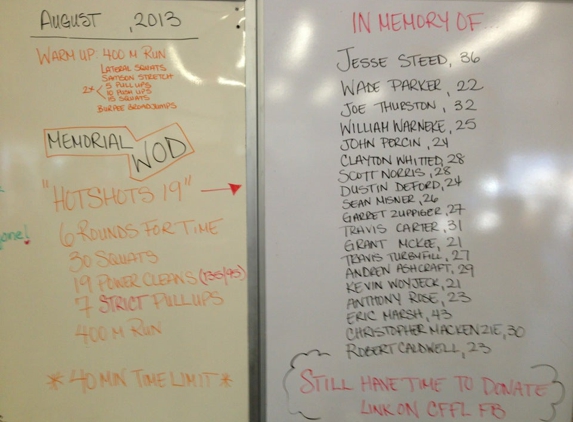 AUGUST , 2013
WARM UP: 400 M RUN
LATERAL SQUATS
SAMSON STRETCH
2x < 5 PULL UPS
10 PUSH UPS
15 SQUATS
BURPEE BROADJUMPS
MEMORIAL
WOD
"HOTSHOTS 19" →
6 ROUNDS FOR TIME
30 SQUATS
19 POWER CLEANS (135/95)
7 STRICT PULLUPS
400 M RUN
* 40 MIN TIME LIMIT *
IN MEMORY OF
JESSE STEED, 36
WADE PARKER, 22
JOE THURSTON, 32
WILLIAM WARNEKE, 25
JOHN PERCIN, 24
CLAYTON WHITTED, 28
SCOTT NORRIS, 28
DUSTIN DEFORD, 24
SEAN MISNER, 26
GARRET ZUPPIGER, 27
TRAVIS CARTER, 31
GRANT MCKEE, 21
TRAVIS TURBYFILL, 27
ANDREN ASHCRAFT, 29
KEVIN WOYJECK, 21
ANTHONY ROSE, 23
ERIC MARSH, 43
CHRISTOPHER MACKENZIE, 30
ROBERT CALDWELL, 23
STILL HAVE TIME TO DONATE
LINK ON CFFL FB